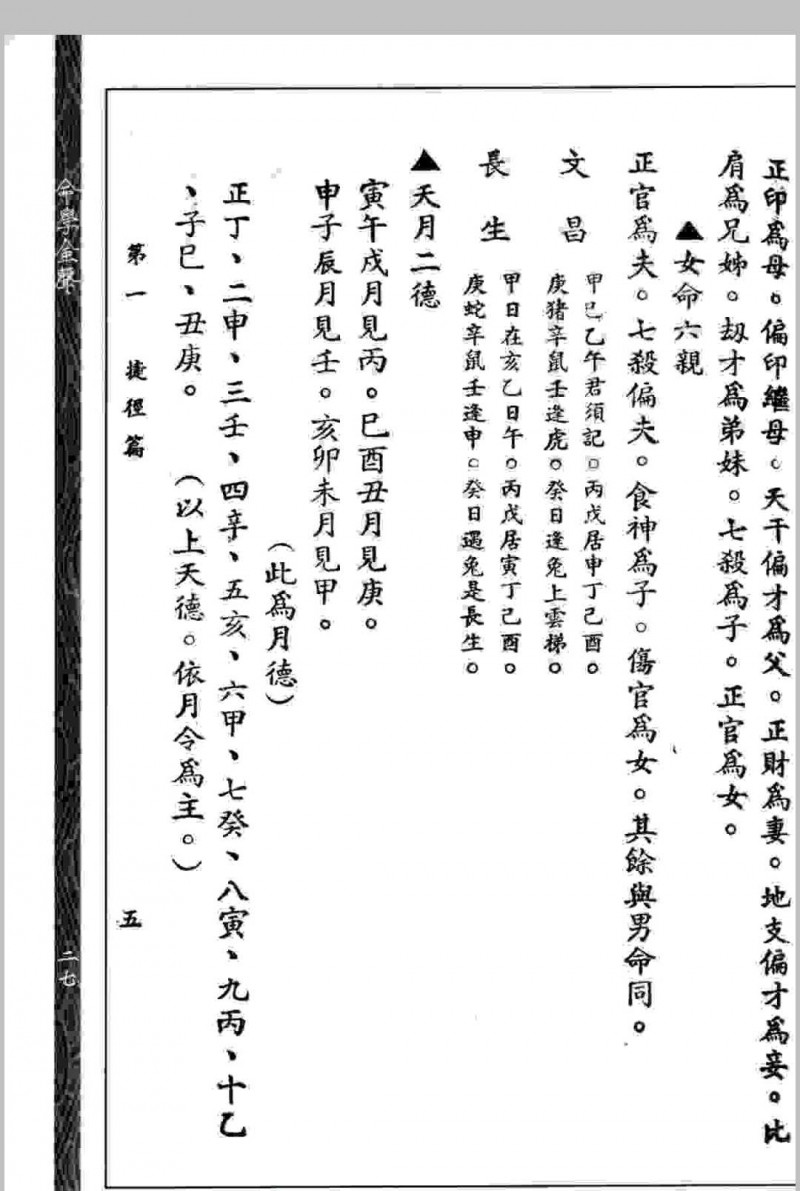 正印為母。偏印繼母。天干偏才為父。正財為妻。地支偏才為妾。比
肩為兄姊。刼才為弟妹。七殺為子。正官為女。
▲女命六親
正官為夫。七殺偏夫。食神為子。傷官為女。其餘與男命同。
文昌
甲巳乙午君須記。丙戊居申丁己酉。
庚豬辛鼠壬逢虎。癸日逢兔上雲梯。
長生
甲日在亥乙日午。丙戊居寅丁己酉。
庚蛇辛鼠壬逢申。癸日遇兔是長生。
▲天月二德
寅午戌月見丙。巳酉丑月見庚。
申子辰月見壬。亥卯未月見甲。
（此為月德）
正丁、二申、三壬、四辛、五亥、六甲、七癸、八寅、九丙、十乙
、子巳、丑庚。（以上天德。依月令為主。）
第一 捷徑篇 五
命學金聲 二七